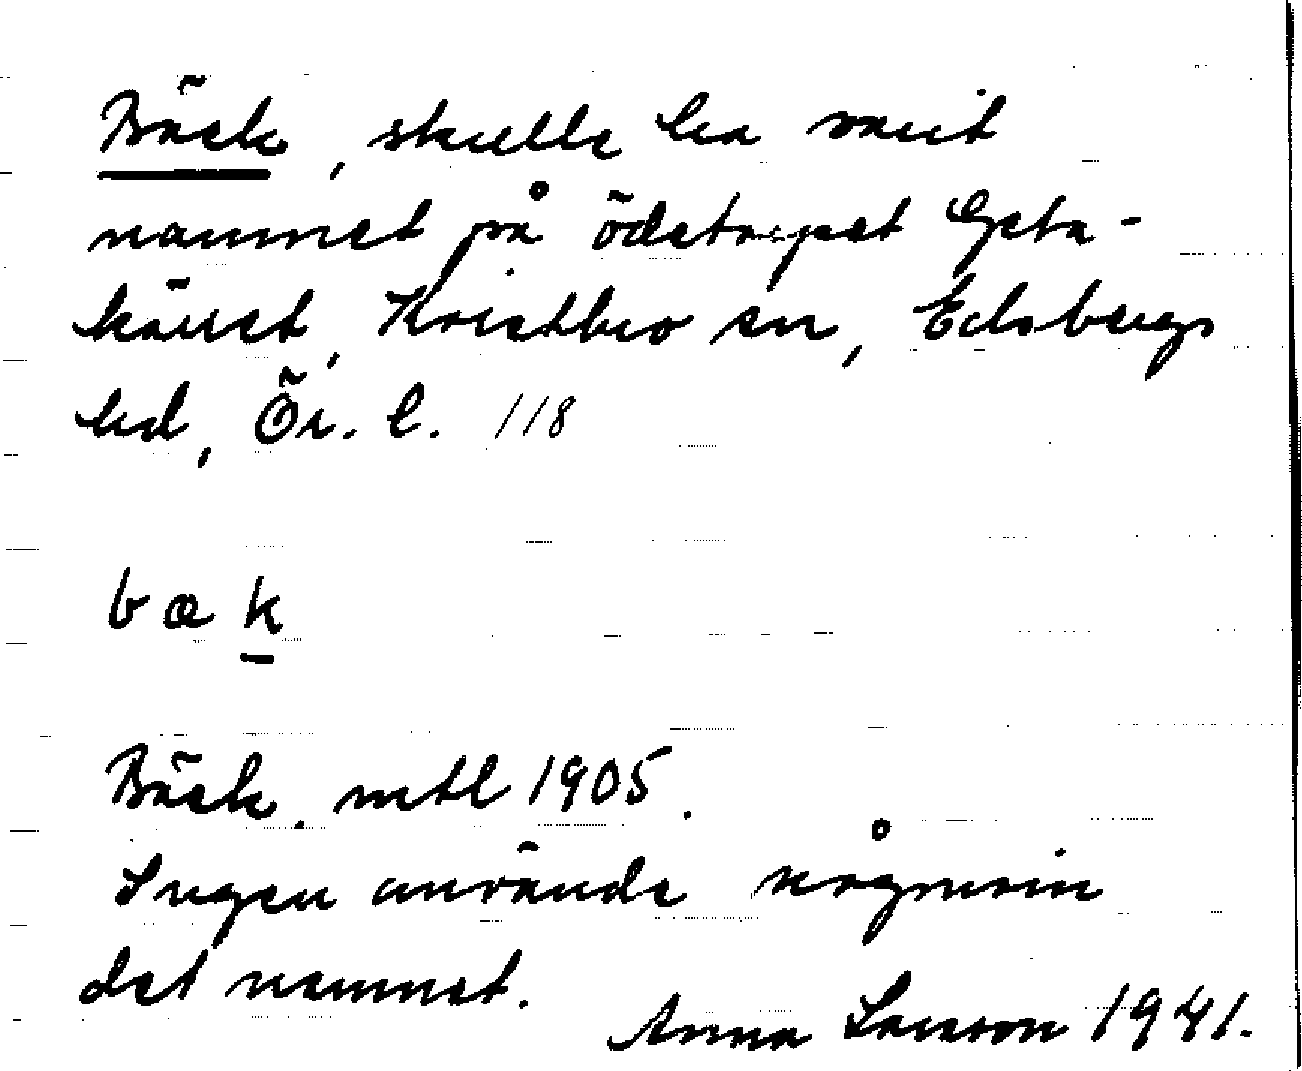 Bäck, skulle ha varit
namnet på ödetorpet Geta-
kärret, Kvistbro sn, Edsbergs
hd, Ör. l. 118
bæk
Bäck. mtl 1905.
Ingen använde någonsin
det namnet.
Anna Larsson 1941.